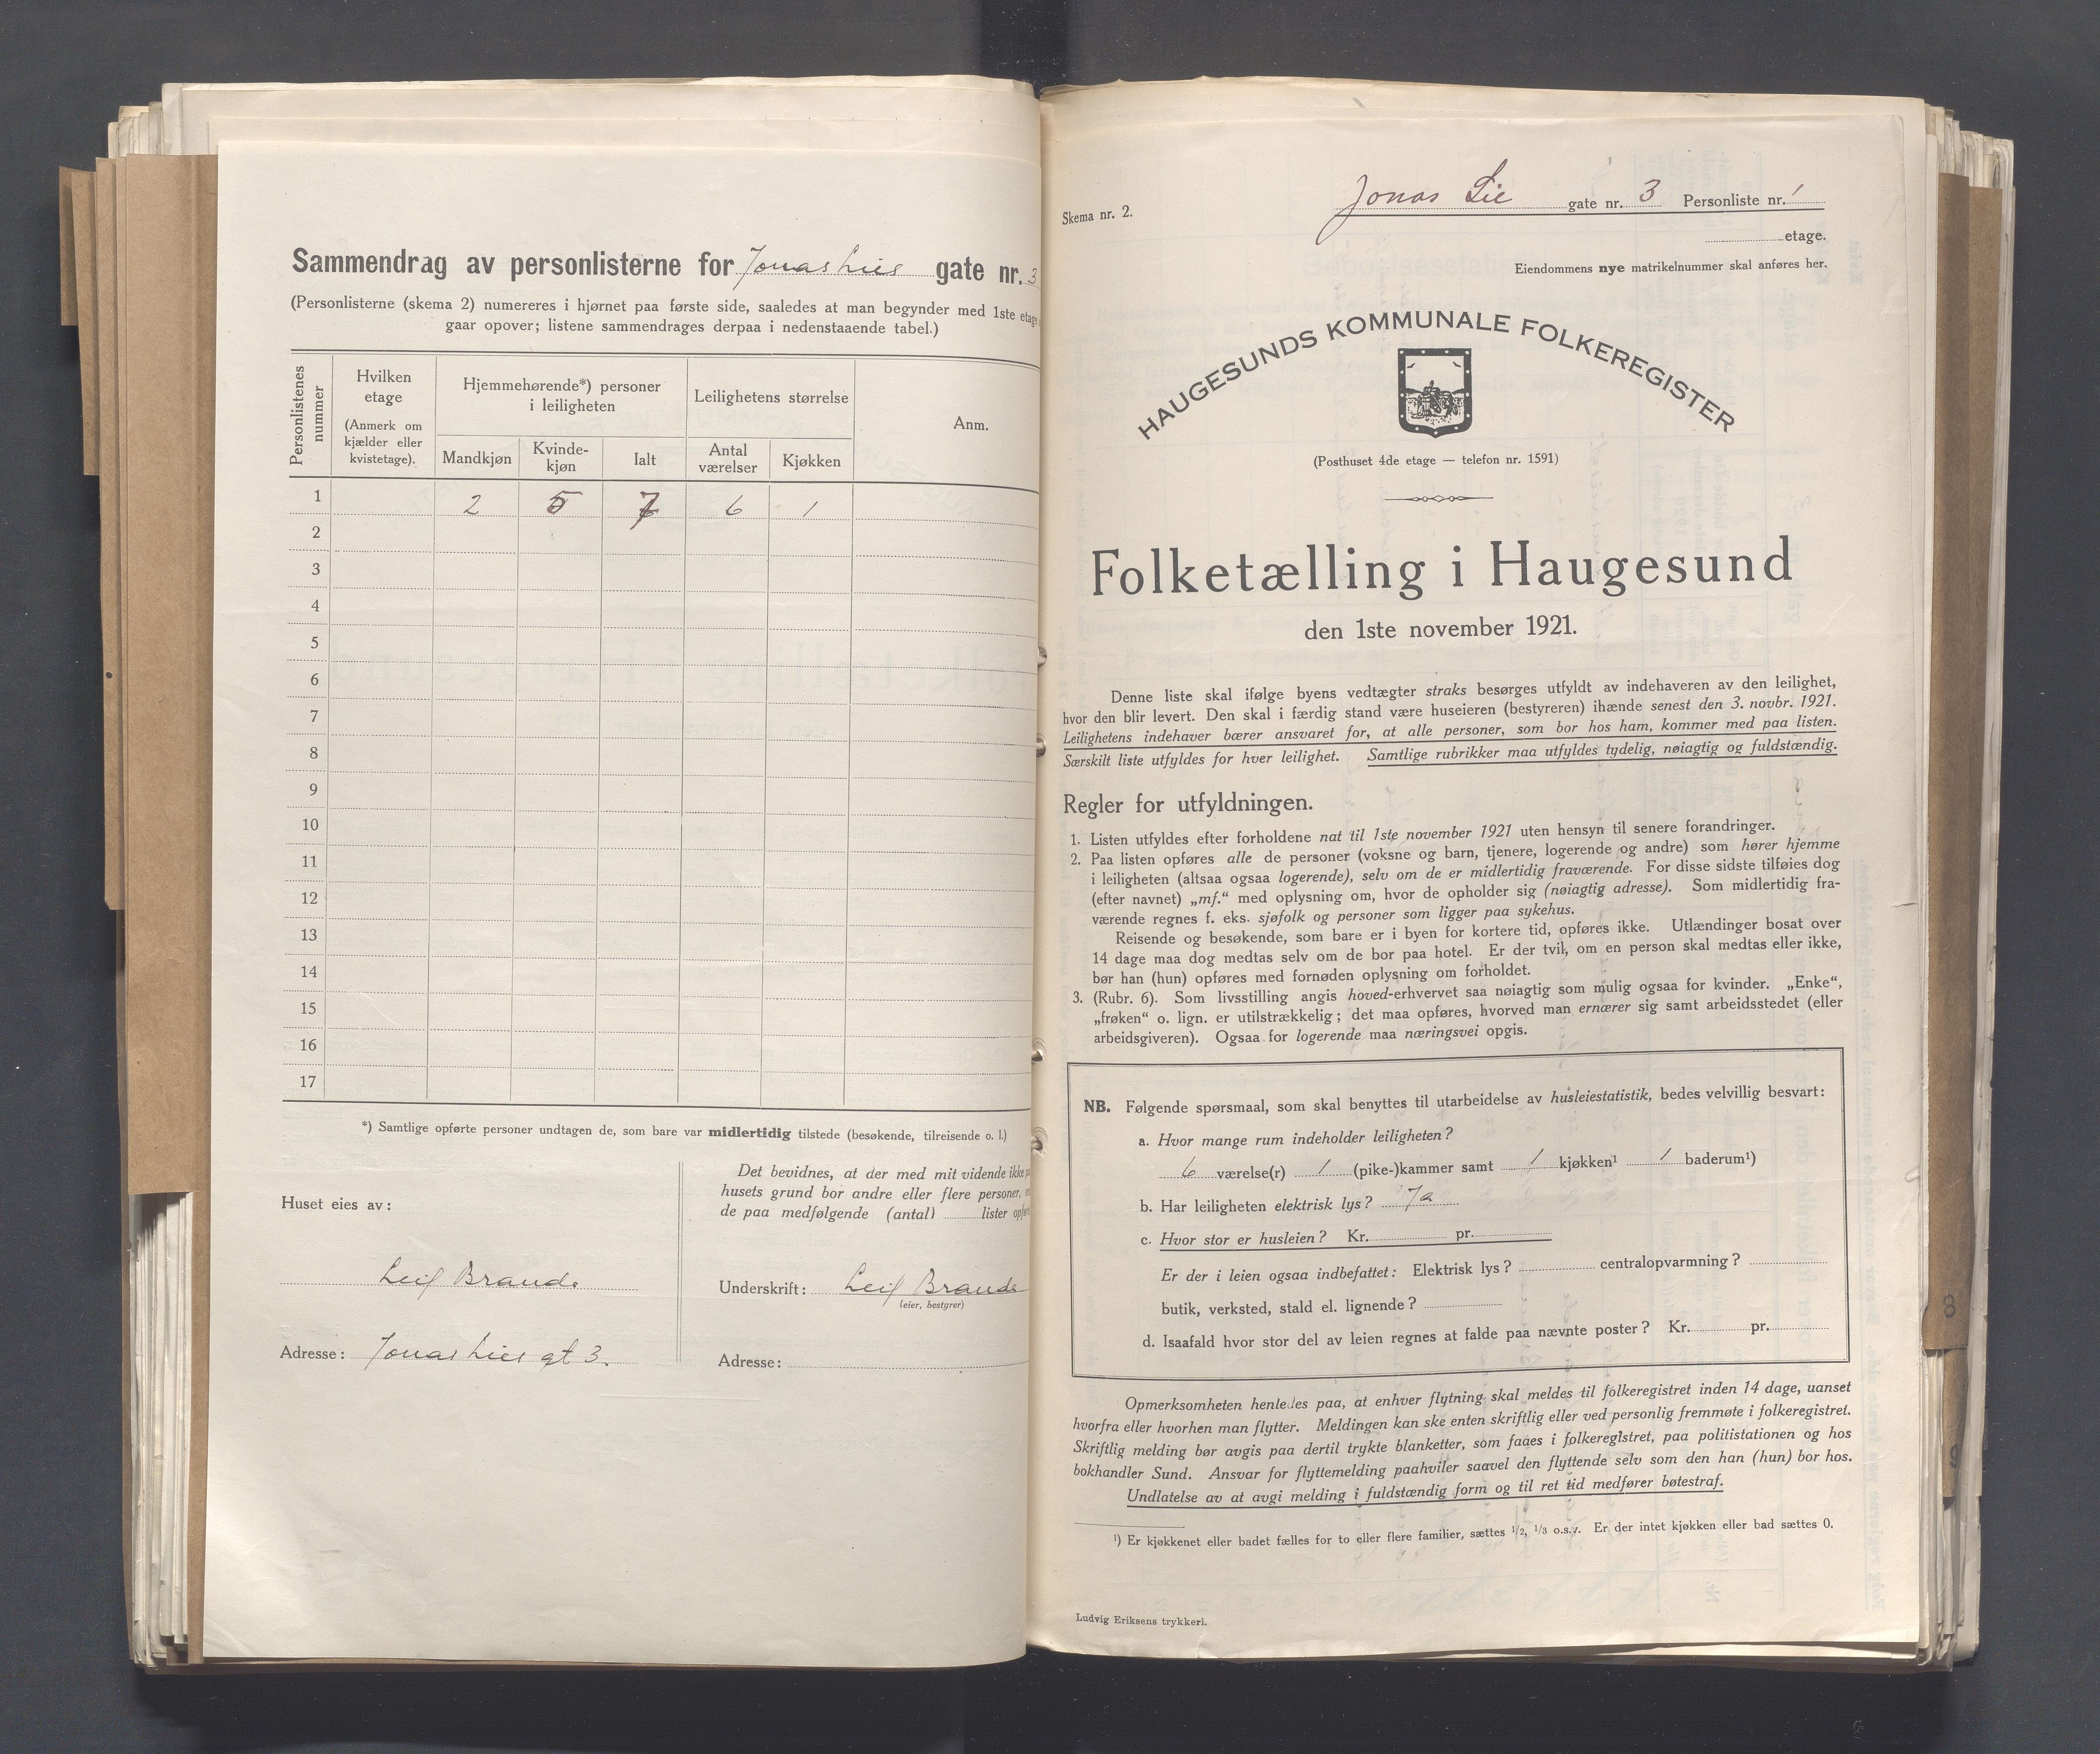 Sammendrag av personlisterne for Jonas Lies gate nr. 3
(Personlisterne (skema 2) numereres i hjørnet paa første side, saaledes at man begynder med 1ste etage
gaar opover; listene sammendrages derpaa i nedenstaaende tabel.)
Personlistenes nummer
Hvilken etage
(Anmerk om kjælder eller kvistetage).
Hjemmehørende*) personer i leiligheten
Leilighetens størrelse
Anm.
Mandkjøn
Kvinde-kjøn
Ialt
Antal værelser
Kjøkken
1 2 5 7 6 1
2
3
4
5
6
7
8
9
10
11
12
13
14
15
16
17
*) Samtlige opførte personer undtagen de, som bare var midlertidig tilstede (besøkende, tilreisende o. l.)
Huset eies av:
Leif Brande
Adresse: Jonas Lies gt 3.
Det bevidnes, at der med mit vidende ikke
husets grund bor andre eller flere personer,
de paa medfølgende (antal) lister
Underskrift: Leif Brande
(eier, bestyrer)
Adresse:
Skema nr. 2.
Jonas Lie gate nr. 3 Personliste nr. 1
etage.
Eiendommens nye matrikelnummer skal anføres her.
HAUGESUNDS KOMMUNALE FOLKEREGISTER
(Posthuset 4de etage — telefon nr. 1591)
Folketælling i Haugesund
den 1ste november 1921.
Denne liste skal ifølge byens vedtægter straks besørges utfyldt av indehaveren av den leilighet,
hvor den blir levert. Den skal i færdig stand være huseieren (bestyreren) ihænde senest den 3. novbr. 1921.
Leilighetens indehaver bærer ansvaret for, at alle personer, som bor hos ham, kommer med paa listen.
Særskilt liste utfyldes for hver leilighet. Samtlige rubrikker maa utfyldes tydelig, nøiagtig og fuldstændig.
Regler for utfyldningen.
1. Listen utfyldes efter forholdene nat til 1ste november 1921 uten hensyn til senere forandringer.
2. Paa listen opføres alle de personer (voksne og barn, tjenere, logerende og andre) som hører hjemme
i leiligheten (altsaa ogsaa logerende), selv om de er midlertidig fraværende. For disse sidste tilføies dog
(efter navnet) „mf.“ med oplysning om, hvor de opholder sig (nøiagtig adresse). Som midlertidig fra-
værende regnes f. eks. sjøfolk og personer som ligger paa sykehus.
Reisende og besøkende, som bare er i byen for kortere tid, opføres ikke. Utlændinger bosat over
14 dage maa dog medtas selv om de bor paa hotel. Er der tvil, om en person skal medtas eller ikke,
bør han (hun) opføres med fornøden oplysning om forholdet.
3. (Rubr. 6). Som livsstilling angis hoved-erhvervet saa nøiagtig som mulig ogsaa for kvinder. „Enke“,
„frøken“ o. lign. er utilstrækkelig; det maa opføres, hvorved man ernærer sig samt arbeidsstedet (eller
arbeidsgiveren). Ogsaa for logerende maa næringsvei opgis.
NB. Følgende spørsmaal, som skal benyttes til utarbeidelse av husleiestatistik, bedes velvillig besvart:
a. Hvor mange rum indeholder leiligheten?
6 værelse(r) 1 (pike-)kammer samt 1 kjøkken¹ 1 baderum¹)
b. Har leiligheten elektrisk lys? Ja
c. Hvor stor er husleien? Kr. pr.
Er der i leien ogsaa indbefattet: Elektrisk lys? centralopvarmning?
butik, verksted, stald el. lignende?
d. Isaafald hvor stor del av leien regnes at falde paa nævnte poster? Kr. pr.
Opmerksomheten henledes paa, at enhver flytning skal meldes til folkeregistret inden 14 dage, uanset
hvorfra eller hvorhen man flytter. Meldingen kan ske enten skriftlig eller ved personlig fremmøte i folkeregistret.
Skriftlig melding bør avgis paa dertil trykte blanketter, som faaes i folkeregistret, paa politistationen og hos
bokhandler Sund. Ansvar for flyttemelding paahviler saavel den flyttende selv som den han (hun) bor hos.
Undlatelse av at avgi melding i fuldstændig form og til ret tid medfører bøtestraf.
¹) Er kjøkkenet eller badet fælles for to eller flere familier, sættes 1/2, 1/3 o.s.v. Er der intet kjøkken eller bad sættes 0.
Ludvig Eriksens trykkeri.
8
9